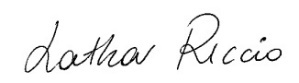 Lothar Riccio